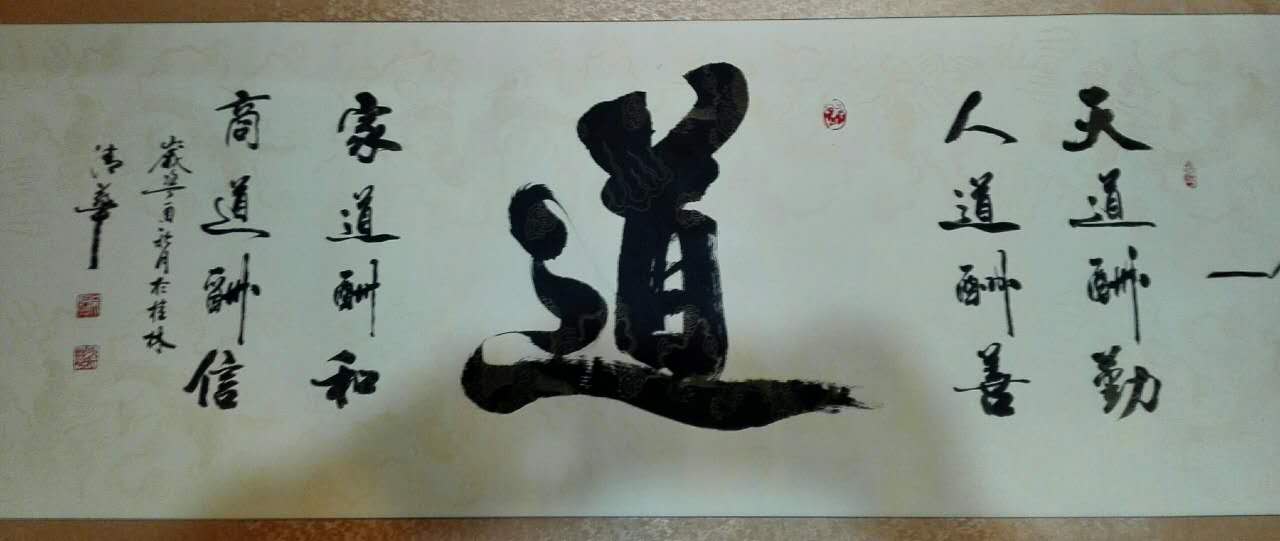 天道酬勤
人道酬善
道
家道酬和
商道酬信
歲
酉秋月於桂林
清華